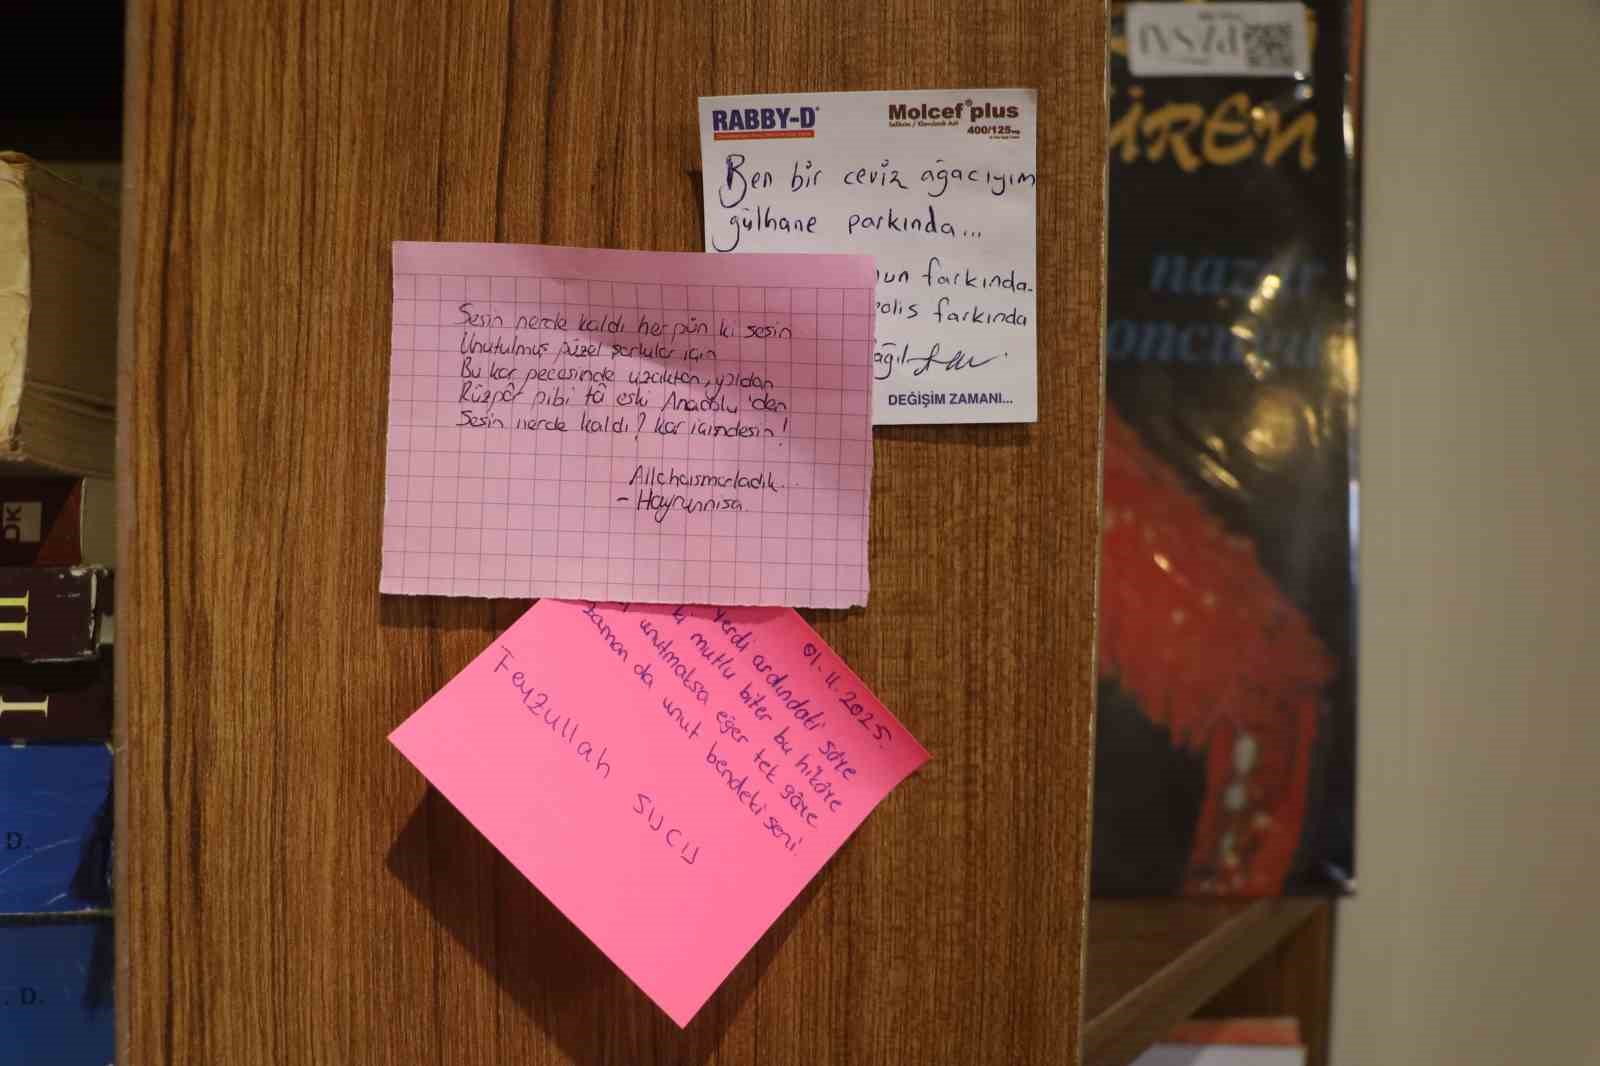 RABBY-D
Molcef plus
400/125 mg
Ben bir ceviz ağacıyım
gülhane parkında...
nun farkında.
polis farkında
DEĞİŞİM ZAMANI...
Sesin nerde kaldı her gün ki sesin
Unutulmuş güzel şarkılar için
Bu kar gecesinde uzaktan, yoldan
Rüzgâr gibi tâ eski Anadolu'den
Sesin nerde kaldı? kar içindesin!
Allahaısmarladık..
- Hayrunnisa.
01.11.2025.
Verdi ardındaki sare
ki mutlu biter bu hikâre
unutmaksa eğer tek gâre
zaman da unut bendeki seni.
Feyzullah SUCU
ÜREN
nazır
oncuğu
DK
II
I
D.
. D.